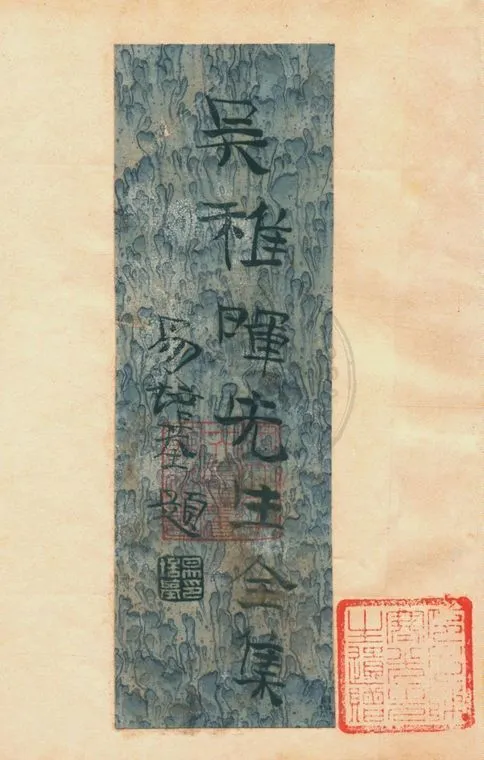 吴稚暉先生全集
易培基題